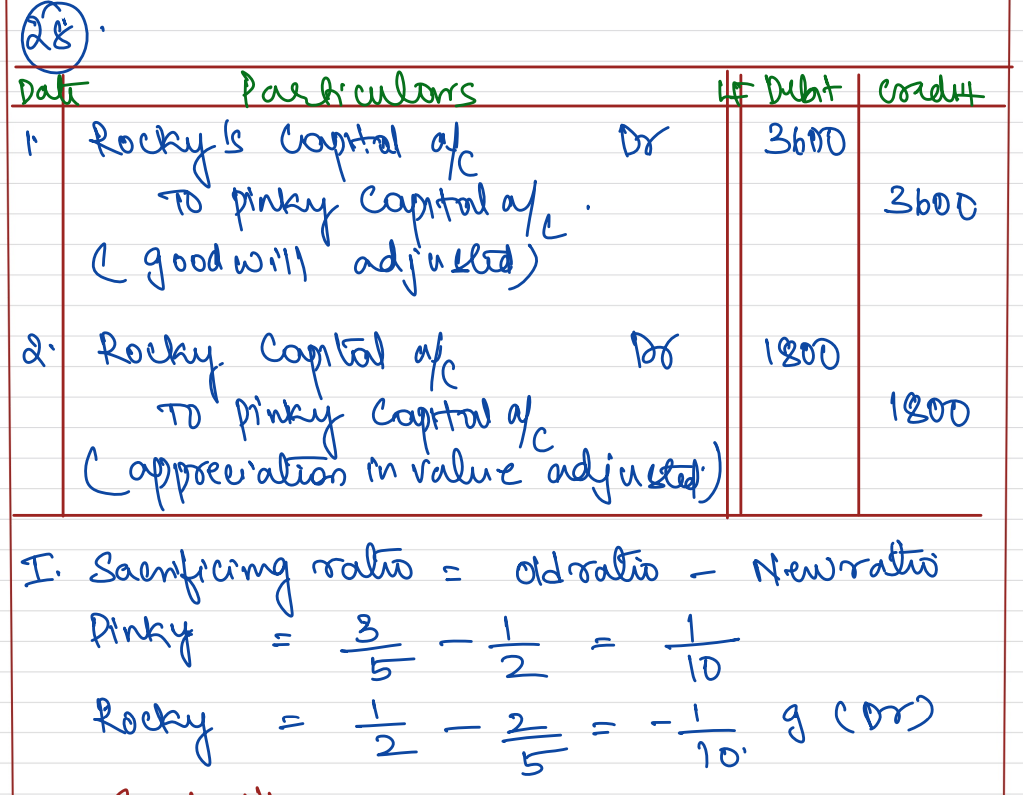 28.
Date Particulars LF Debit Credit
1. Rocky's Capital a/c Dr 3600
To pinky Capital a/c. 3600
(goodwill adjusted)
2. Rocky. Capital a/c Dr 1800
To pinky Capital a/c 1800
(appreciation in value adjusted.)
I. Sacrificing ratio = old ratio - New ratio
Pinky = 3/5 - 1/2 = 1/10
Rocky = 1/2 - 2/5 = -1/10. g (Dr)